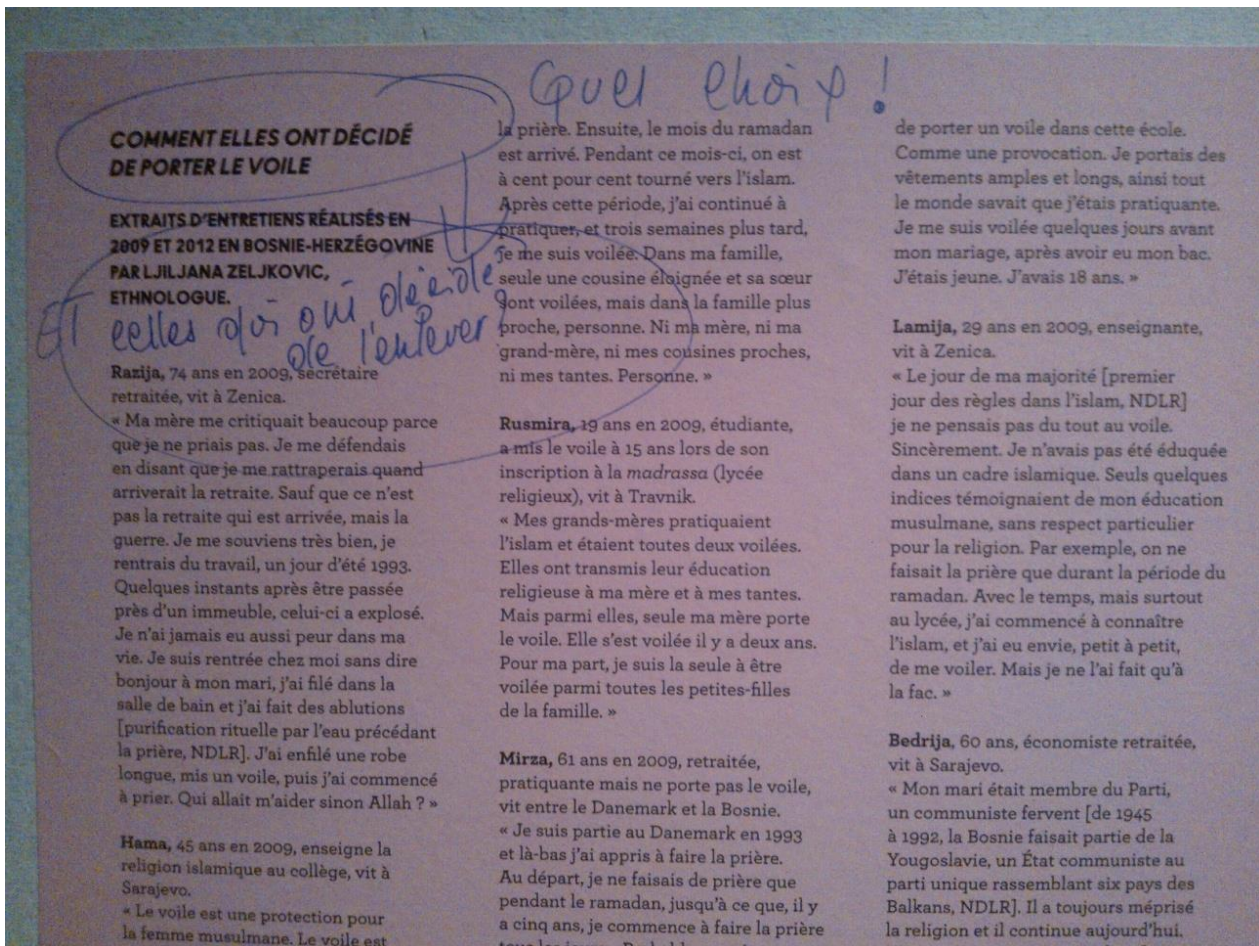 Quel choix !
COMMENT ELLES ONT DÉCIDÉ
DE PORTER LE VOILE
EXTRAITS D'ENTRETIENS RÉALISÉS EN
2009 ET 2012 EN BOSNIE-HERZÉGOVINE
PAR LJILJANA ZELJKOVIC,
ETHNOLOGUE.
ET celles qui ont décidé
de l'enlever ?
Razija, 74 ans en 2009, secrétaire
retraitée, vit à Zenica.
« Ma mère me critiquait beaucoup parce
que je ne priais pas. Je me défendais
en disant que je me rattraperais quand
arriverait la retraite. Sauf que ce n'est
pas la retraite qui est arrivée, mais la
guerre. Je me souviens très bien, je
rentrais du travail, un jour d'été 1993.
Quelques instants après être passée
près d'un immeuble, celui-ci a explosé.
Je n'ai jamais eu aussi peur dans ma
vie. Je suis rentrée chez moi sans dire
bonjour à mon mari, j'ai filé dans la
salle de bain et j'ai fait des ablutions
[purification rituelle par l'eau précédant
la prière, NDLR]. J'ai enfilé une robe
longue, mis un voile, puis j'ai commencé
à prier. Qui allait m'aider sinon Allah ? »
Hama, 45 ans en 2009, enseigne la
religion islamique au collège, vit à
Sarajevo.
« Le voile est une protection pour
la femme musulmane. Le voile est
la prière. Ensuite, le mois du ramadan
est arrivé. Pendant ce mois-ci, on est
à cent pour cent tourné vers l'islam.
Après cette période, j'ai continué à
pratiquer, et trois semaines plus tard,
je me suis voilée. Dans ma famille,
seule une cousine éloignée et sa sœur
sont voilées, mais dans la famille plus
proche, personne. Ni ma mère, ni ma
grand-mère, ni mes cousines proches,
ni mes tantes. Personne. »
Rusmira, 19 ans en 2009, étudiante,
a mis le voile à 15 ans lors de son
inscription à la madrassa (lycée
religieux), vit à Travnik.
« Mes grands-mères pratiquaient
l'islam et étaient toutes deux voilées.
Elles ont transmis leur éducation
religieuse à ma mère et à mes tantes.
Mais parmi elles, seule ma mère porte
le voile. Elle s'est voilée il y a deux ans.
Pour ma part, je suis la seule à être
voilée parmi toutes les petites-filles
de la famille. »
Mirza, 61 ans en 2009, retraitée,
pratiquante mais ne porte pas le voile,
vit entre le Danemark et la Bosnie.
« Je suis partie au Danemark en 1993
et là-bas j'ai appris à faire la prière.
Au départ, je ne faisais de prière que
pendant le ramadan, jusqu'à ce que, il y
a cinq ans, je commence à faire la prière
tous les jours.
de porter un voile dans cette école.
Comme une provocation. Je portais des
vêtements amples et longs, ainsi tout
le monde savait que j'étais pratiquante.
Je me suis voilée quelques jours avant
mon mariage, après avoir eu mon bac.
J'étais jeune. J'avais 18 ans. »
Lamija, 29 ans en 2009, enseignante,
vit à Zenica.
« Le jour de ma majorité [premier
jour des règles dans l'islam, NDLR]
je ne pensais pas du tout au voile.
Sincèrement. Je n'avais pas été éduquée
dans un cadre islamique. Seuls quelques
indices témoignaient de mon éducation
musulmane, sans respect particulier
pour la religion. Par exemple, on ne
faisait la prière que durant la période du
ramadan. Avec le temps, mais surtout
au lycée, j'ai commencé à connaître
l'islam, et j'ai eu envie, petit à petit,
de me voiler. Mais je ne l'ai fait qu'à
la fac. »
Bedrija, 60 ans, économiste retraitée,
vit à Sarajevo.
« Mon mari était membre du Parti,
un communiste fervent [de 1945
à 1992, la Bosnie faisait partie de la
Yougoslavie, un État communiste au
parti unique rassemblant six pays des
Balkans, NDLR]. Il a toujours méprisé
la religion et il continue aujourd'hui.